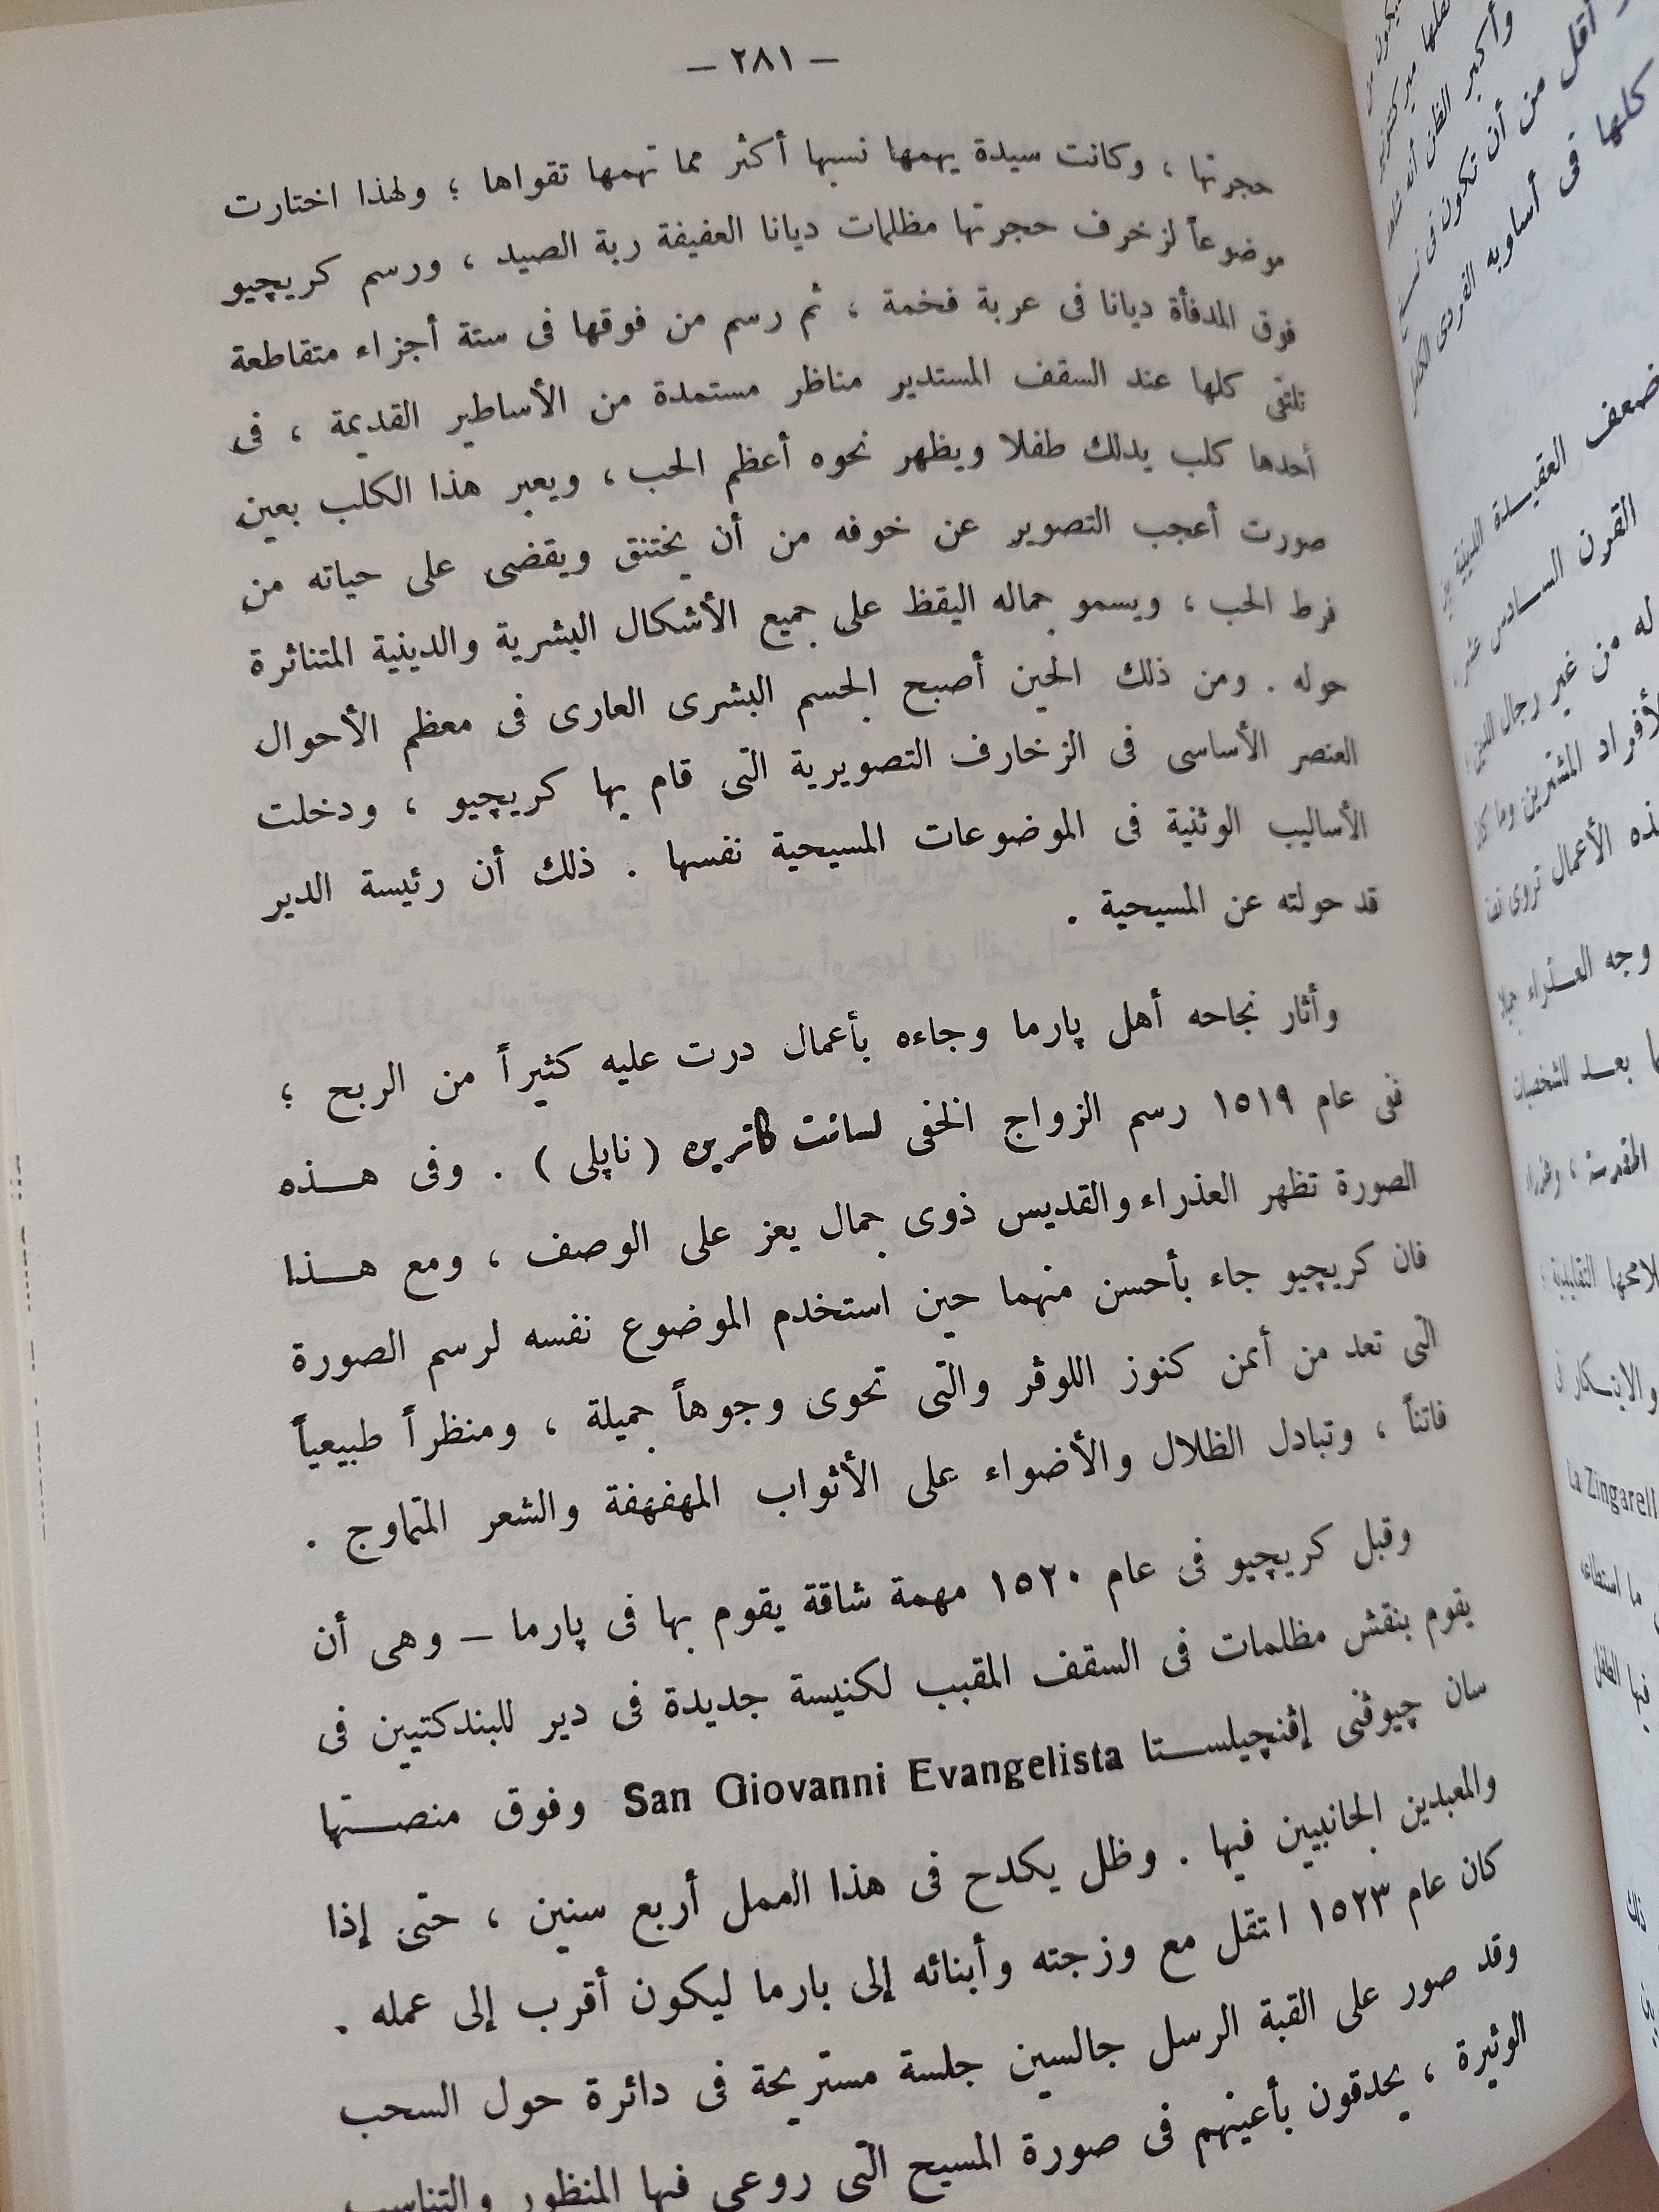 — ٢٨١ —
حجرتها ، وكانت سيدة يهمها نسبها أكثر مما تهمها تقواها ؛ ولهذا اختارت
موضوعاً لزخرف حجرتها مظلمات ديانا العفيفة ربة الصيد ، ورسم كريچيو
فوق المدفأة ديانا فى عربة فخمة ، ثم رسم من فوقها فى ستة أجزاء متقاطعة
تلتقى كلها عند السقف المستدير مناظر مستمدة من الأساطير القديمة ، فى
أحدها كلب يدلك طفلا ويظهر نحوه أعظم الحب ، ويعبر هذا الكلب بعين
صورت أعجب التصوير عن خوفه من أن يختنق ويقضى على حياته من
فرط الحب ، ويسمو جماله اليقظ على جميع الأشكال البشرية والدينية المتناثرة
حوله . ومن ذلك الحين أصبح الجسم البشرى العارى فى معظم الأحوال
العنصر الأساسى فى الزخارف التصويرية التى قام بها كريچيو ، ودخلت
الأساليب الوثنية فى الموضوعات المسيحية نفسها . ذلك أن رئيسة الدير
قد حولته عن المسيحية .
وأثار نجاحه أهل پارما وجاءه بأعمال درت عليه كثيراً من الربح ؛
ففى عام ١٥١٩ رسم الزواج الخفى لسانت كاترين ( ناپلى ) . وفى هـــذه
الصورة تظهر العذراء والقديس ذوى جمال يعز على الوصف ، ومع هـــذا
فان كريچيو جاء بأحسن منهما حين استخدم الموضوع نفسه لرسم الصورة
التى تعد من أثمن كنوز اللوڤر والتى تحوى وجوهاً جميلة ، ومنظراً طبيعياً
فاتناً ، وتبادل الظلال والأضواء على الأثواب المهفهفة والشعر المتماوج .
وقبل كريچيو فى عام ١٥٢٠ مهمة شاقة يقوم بها فى پارما — وهى أن
يقوم بنقش مظلمات فى السقف المقبب لكنيسة جديدة فى دير للبندكتيين فى
سان چيوڤنى إڤنچيلســتا San Giovanni Evangelista وفوق منصــتها
والمعبدين الجانبيين فيها . وظل يكدح فى هذا العمل أربع سنين ، حتى إذا
كان عام ١٥٢٣ انتقل مع وزجته وأبنائه إلى بارما ليكون أقرب إلى عمله .
وقد صور على القبة الرسل جالسين جلسة مستريحة فى دائرة حول السحب
الوثيرة ، يحدقون بأعينهم فى صورة المسيح التى روعى فيها المنظور والتناسب
أقل من أن تكون فى
كلها فى أسلوبه الفردى
ضعف العقيدة الدينية
القرن الســادس عشر
له من غير رجال الدين
وجه العــذراء
بعــد للشخصيات
المقدسة ،
والابتــكار فى
La Zingarell
ما استطاع
فيها الطفل